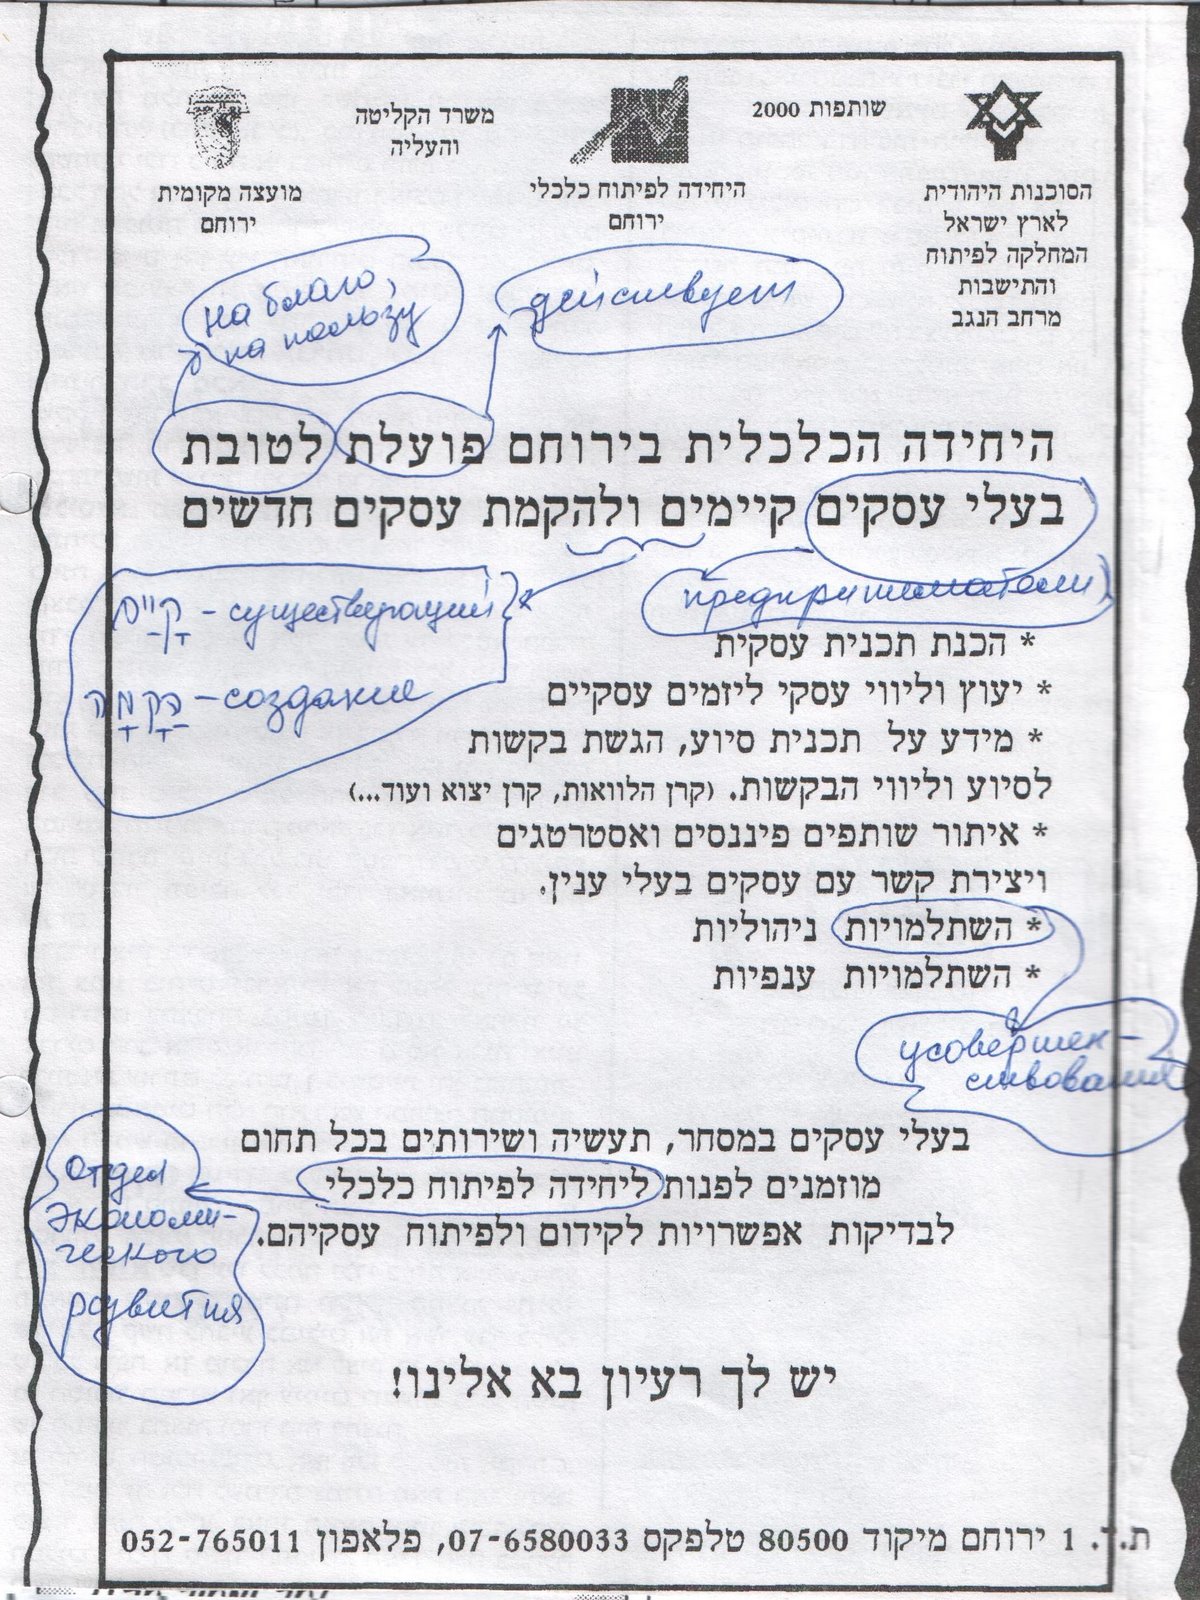 שותפות 2000
משרד הקליטה
והעליה
הסוכנות היהודית
לארץ ישראל
המחלקה לפיתוח
והתישבות
מרחב הנגב
היחידה לפיתוח כלכלי
ירוחם
מועצה מקומית
ירוחם
действует
на благо,
на пользу
היחידה הכלכלית בירוחם פועלת לטובת
בעלי עסקים קיימים ולהקמת עסקים חדשים
предприниматели
קַיָּים - существующий
הֲקָמָה - создание
* הכנת תכנית עסקית
* יעוץ וליווי עסקי ליזמים עסקיים
* מידע על תכנית סיוע, הגשת בקשות
לסיוע וליווי הבקשות. (קרן הלוואות, קרן יצוא ועוד...)
* איתור שותפים פיננסים ואסטרטגים
ויצירת קשר עם עסקים בעלי ענין.
* השתלמויות ניהוליות
* השתלמויות ענפיות
усовершен-
ствования
בעלי עסקים במסחר, תעשיה ושירותים בכל תחום
מוזמנים לפנות ליחידה לפיתוח כלכלי
לבדיקות אפשרויות לקידום ולפיתוח עסקיהם.
отдел
экономи-
ческого
развития
יש לך רעיון בא אלינו!
ת.ד. 1 ירוחם מיקוד 80500 טלפקס 07-6580033, פלאפון 052-765011